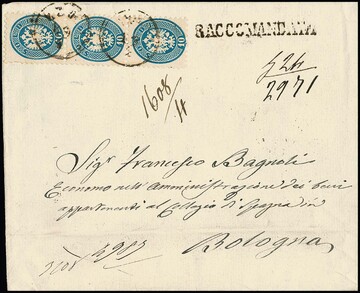 RACCOMANDATA
10 10 10
524
2971
1608
11
Sigr Francesco Bagnoli
Economo nell'amministrazione dei beni
appartenenti al Collegio di Spagna in
Bologna